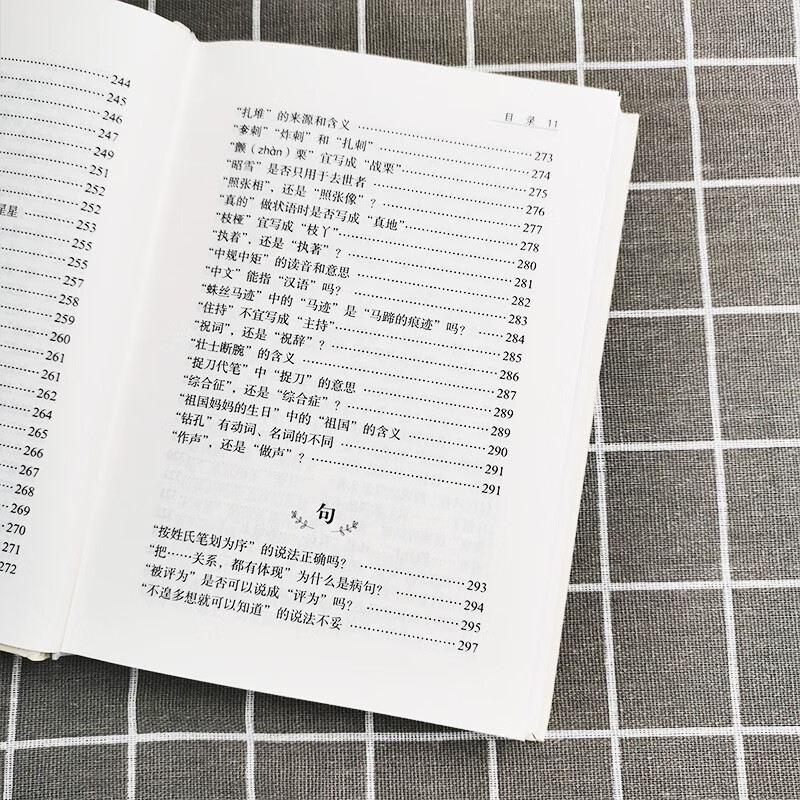 244
245
246
247
249
251
252
252
星星 253
255
255
257
258
259
260
261
261
262
264
265
266
267
268
269
270
271
272
目 录 11
“扎堆”的来源和含义 273
“奓刺”“炸刺”和“扎刺” 274
“颤（zhàn）栗”宜写成“战栗” 275
“昭雪”是否只用于去世者 276
“照张相”，还是“照张像”？ 277
“真的”做状语时是否写成“真地” 278
“枝桠”宜写成“枝丫” 280
“执着”，还是“执著”？ 281
“中规中矩”的读音和意思 282
“中文”能指“汉语”吗？ 283
“蛛丝马迹”中的“马迹”是“马蹄的痕迹”吗？ 284
“住持”不宜写成“主持” 285
“祝词”，还是“祝辞”？ 286
“壮士断腕”的含义 287
“捉刀代笔”中“捉刀”的意思 289
“综合征”，还是“综合症”？ 289
“祖国妈妈的生日”中的“祖国”的含义 290
“钻孔”有动词、名词的不同 291
“作声”，还是“做声”？ 291
句
“按姓氏笔划为序”的说法正确吗？ 293
“把……关系，都有体现”为什么是病句？ 294
“被评为”是否可以说成“评为”吗？ 295
“不遑多想就可以知道”的说法不妥 297